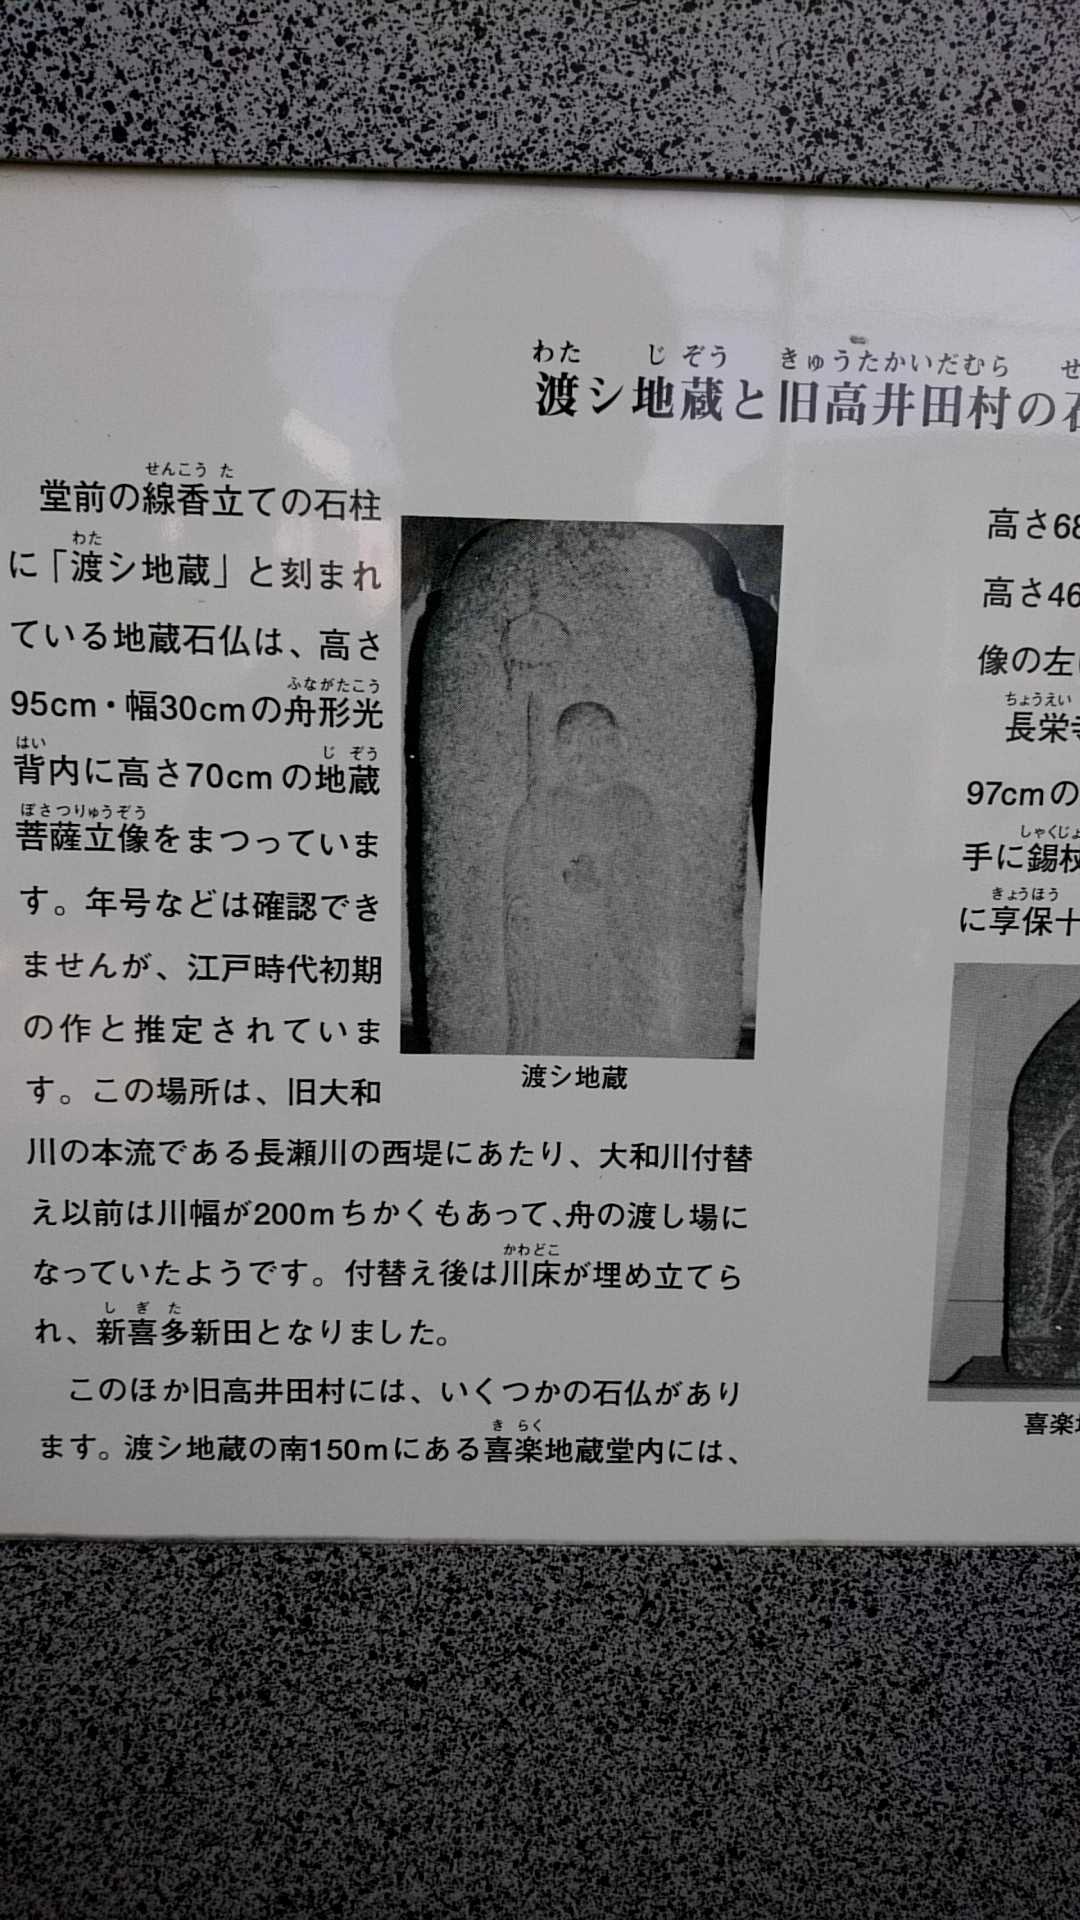 渡シ地蔵と旧高井田村の
わた じ ぞう きゅうたかいだむら せ
堂前の線香立ての石柱
せんこう た
に「渡シ地蔵」と刻まれ
わた
ている地蔵石仏は、高さ
95cm・幅30cmの舟形光
ふながたこう
背内に高さ70cmの地蔵
はい じ ぞう
菩薩立像をまつっていま
ぼさつりゅうぞう
す。年号などは確認でき
ませんが、江戸時代初期
の作と推定されていま
す。この場所は、旧大和
川の本流である長瀬川の西堤にあたり、大和川付替
え以前は川幅が200mちかくもあって、舟の渡し場に
なっていたようです。付替え後は川床が埋め立てら
かわどこ
れ、新喜多新田となりました。
し ぎ た
このほか旧高井田村には、いくつかの石仏があり
ます。渡シ地蔵の南150mにある喜楽地蔵堂内には、
き らく
渡シ地蔵
高さ68
高さ46
像の左
長栄寺
ちょうえい
97cmの
手に錫杖
しゃくじょ
に享保十
きょうほう
喜楽